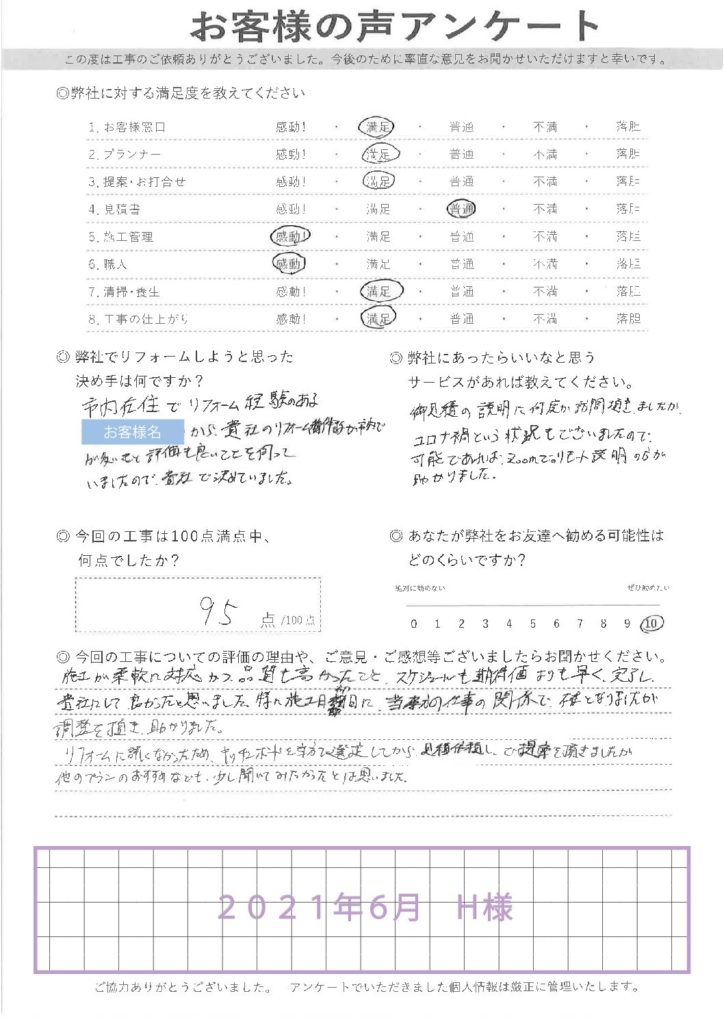 お客様の声アンケート
この度は工事のご依頼ありがとうございました。今後のために率直な意見をお聞かせいただけますと幸いです。
◎弊社に対する満足度を教えてください
1. お客様窓口 感動! ・ 満足 ・ 普通 ・ 不満 ・ 落胆
2. プランナー 感動! ・ 満足 ・ 普通 ・ 不満 ・ 落胆
3. 提案・お打合せ 感動! ・ 満足 ・ 普通 ・ 不満 ・ 落胆
4. 見積書 感動! ・ 満足 ・ 普通 ・ 不満 ・ 落胆
5. 施工管理 感動! ・ 満足 ・ 普通 ・ 不満 ・ 落胆
6. 職人 感動! ・ 満足 ・ 普通 ・ 不満 ・ 落胆
7. 清掃・養生 感動! ・ 満足 ・ 普通 ・ 不満 ・ 落胆
8. 工事の仕上がり 感動! ・ 満足 ・ 普通 ・ 不満 ・ 落胆
◎ 弊社でリフォームしようと思った
決め手は何ですか?
市内在住でリフォーム経験のある
お客様名 から、貴社のリフォーム
が多いことと評価も良いことを伺って
いましたので、貴社で決めていました。
◎ 弊社にあったらいいなと思う
サービスがあれば教えてください。
の説明に何度か訪問頂きましたが、
コロナ禍という状況もございましたので、
可能であれば、Zoomでのリモート説明の方が
助かりました。
◎ 今回の工事は100点満点中、
何点でしたか?
95 点 /100点
◎ あなたが弊社をお友達へ勧める可能性は
どのくらいですか?
絶対に勧めない ぜひ勧めたい
0 1 2 3 4 5 6 7 8 9 10
◎ 今回の工事についての評価の理由や、ご意見・ご感想等ございましたらお聞かせください。
施工が柔軟に対応かつ、品質も高かったこと、スケジュールも期待値よりも早く、完了し、
貴社にして良かったと思いました。特に施工日数 の仕事の関係で となりましたが
調整を頂き、助かりました。
リフォームに詳しくなかったため、 選定してから 提案を頂きましたが
他のプランのおすすめなども、少し聞いてみたかったとは思いました。
2021年6月 H様
ご協力ありがとうございました。 アンケートでいただきました個人情報は厳正に管理いたします。